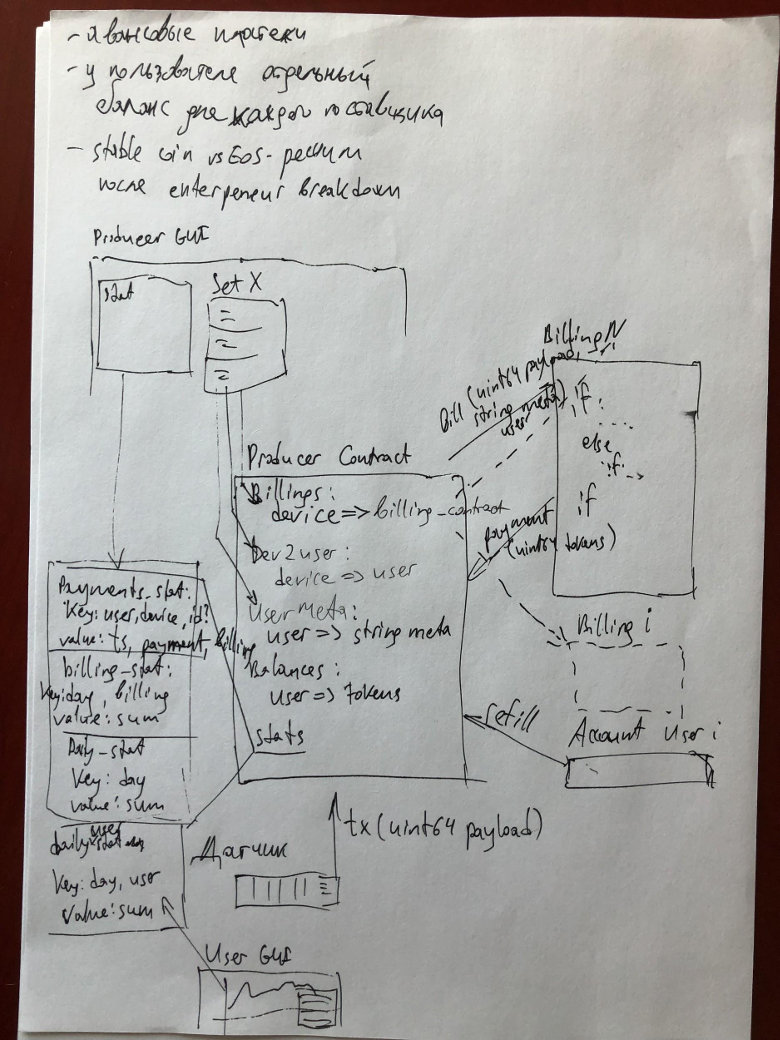 - авансовые платежи
- у пользователя отдельный
баланс для каждого поставщика
- stable coin vs EOS-режим
после enterpeneur breakdown
Producer GUI
stat
Set X
Billing N
Bill (uint64 payload,
string meta)
user
if:
else
if
if
Producer Contract
Billings:
device => billing_contract
Dev2user:
device => user
User Meta:
user => string meta
Balances:
user => tokens
stats
payment
(uint64 tokens)
Payments_stat:
Key: user, device, id?
value: ts, payment, billing
billing_stat:
Key: day, billing
value: sum
Daily_stat
Key: day
value: sum
user
daily stat
Key: day, user
value: sum
Billing i
refill
Account User i
tx (uint64 payload)
Датчик
User GUI